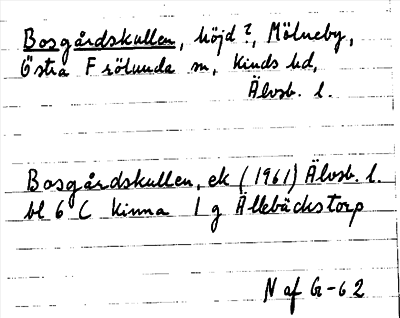 Bosgårdskullen, höjd?, Mölneby,
Östra Frölunda sn, Kinds hd,
Älvsb. l.
Bosgårdskullen, ek (1961) Älvsb. l.
bl 6 C Kinna 1 g Ällebäckstorp
N af G-62